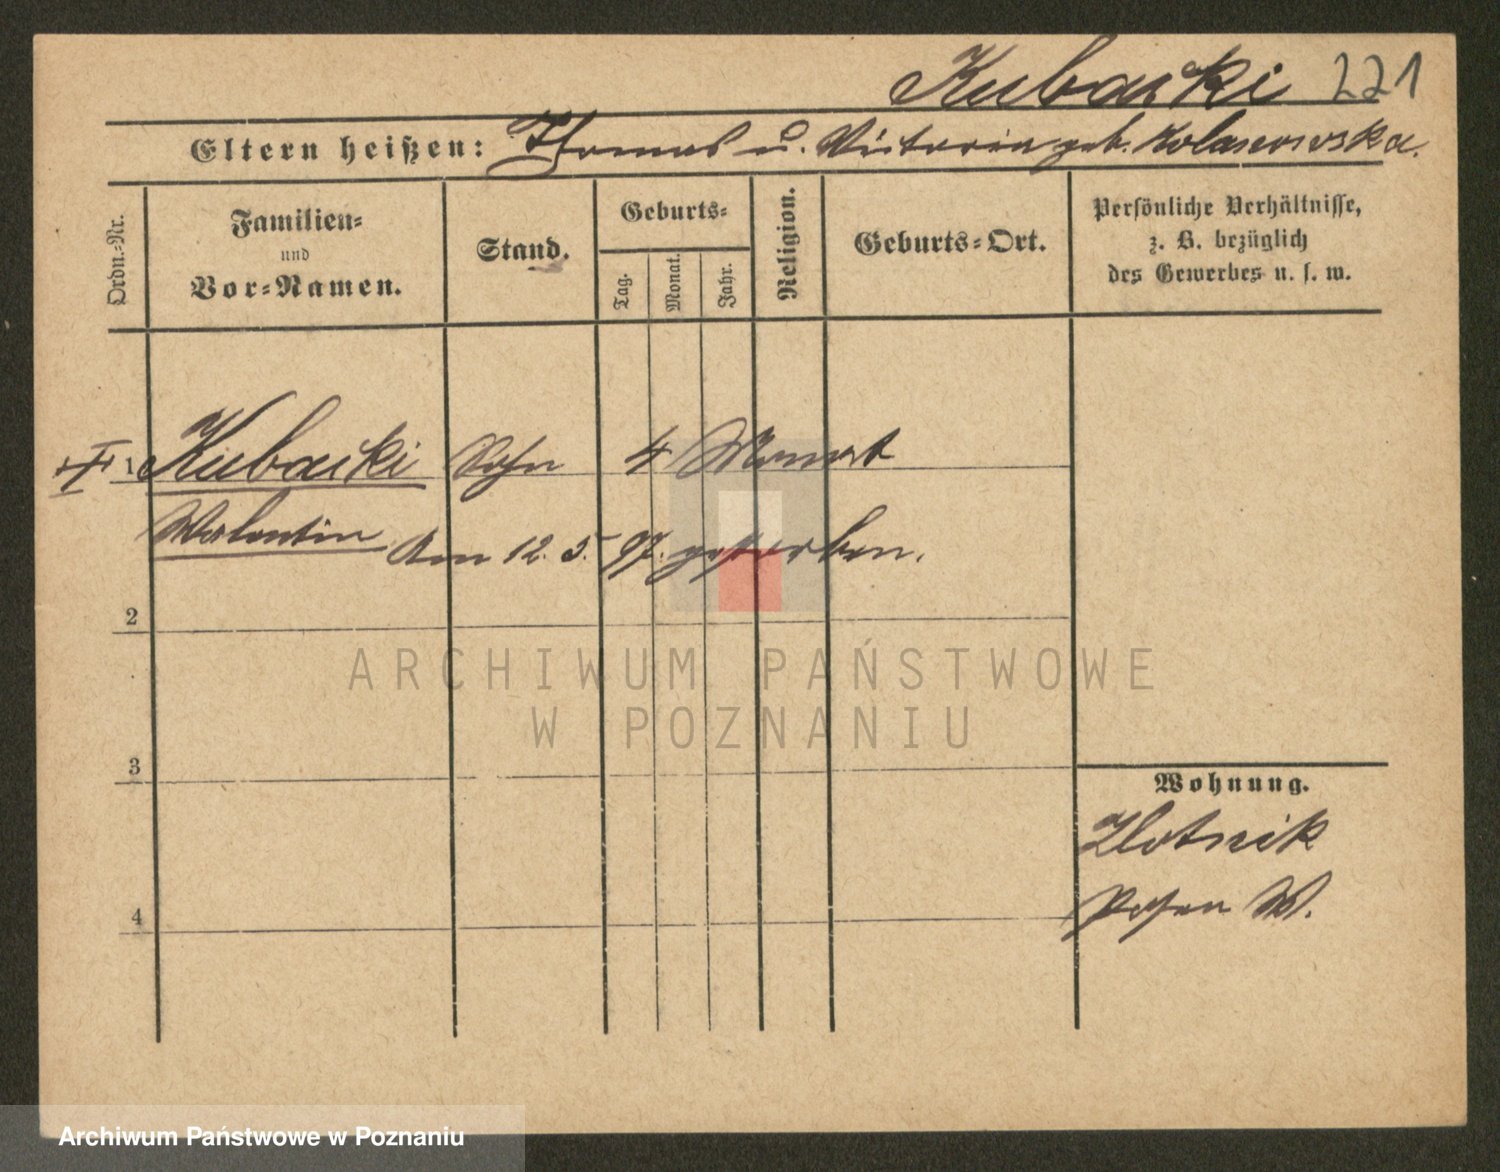 Kubacki 221
Eltern heißen: Thomas u. Victoria geb.
Ordn.-Nr.
Familien-
und
Vor-Namen.
Stand.
Geburts-
Tag.
Monat.
Jahr.
Religion.
Geburts-Ort.
Persönliche Verhältnisse,
z. B. bezüglich
des Gewerbes u. s. w.
1 Kubacki Sohn 4 Monat
Valentin Am 12. 5. 97. gestorben.
2
3
4
Wohnung.
Zlotnik
Posen W.
ARCHIWUM PAŃSTWOWE
W POZNANIU
Archiwum Państwowe w Poznaniu